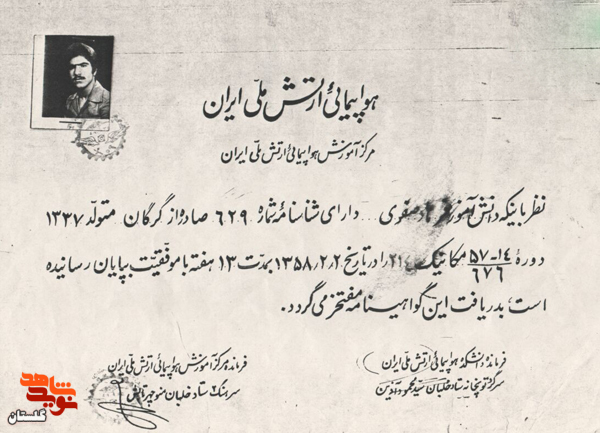 هواپیمائی ارتش ملّی ایران
مرکز آموزش هواپیمائی ارتش ملّی ایران
نظر باینکه دانش آموز صفوی دارای شناسنامه شماره ۶۲۹ صادره از گرگان متولّد ۱۳۳۷
دوره ۱۴-۵۷/۶۷۶ مکانیک ۲۱۴ را در تاریخ ۱۳۵۸.۲.۲ بمدت ۱۳ هفته با موفقیّت بپایان رسانیده
است، بدریافت این گواهینامه مفتخر می گردد.
فرمانده دانشکده هواپیمائی ارتش ملّی ایران
سرگرد توپخانه ستاد خلبان سیّد محمود
فرمانده مرکز آموزش هواپیمائی ارتش ملّی ایران
سرهنگ ستاد خلبان منوچهر
نوید شاهد
گلستان